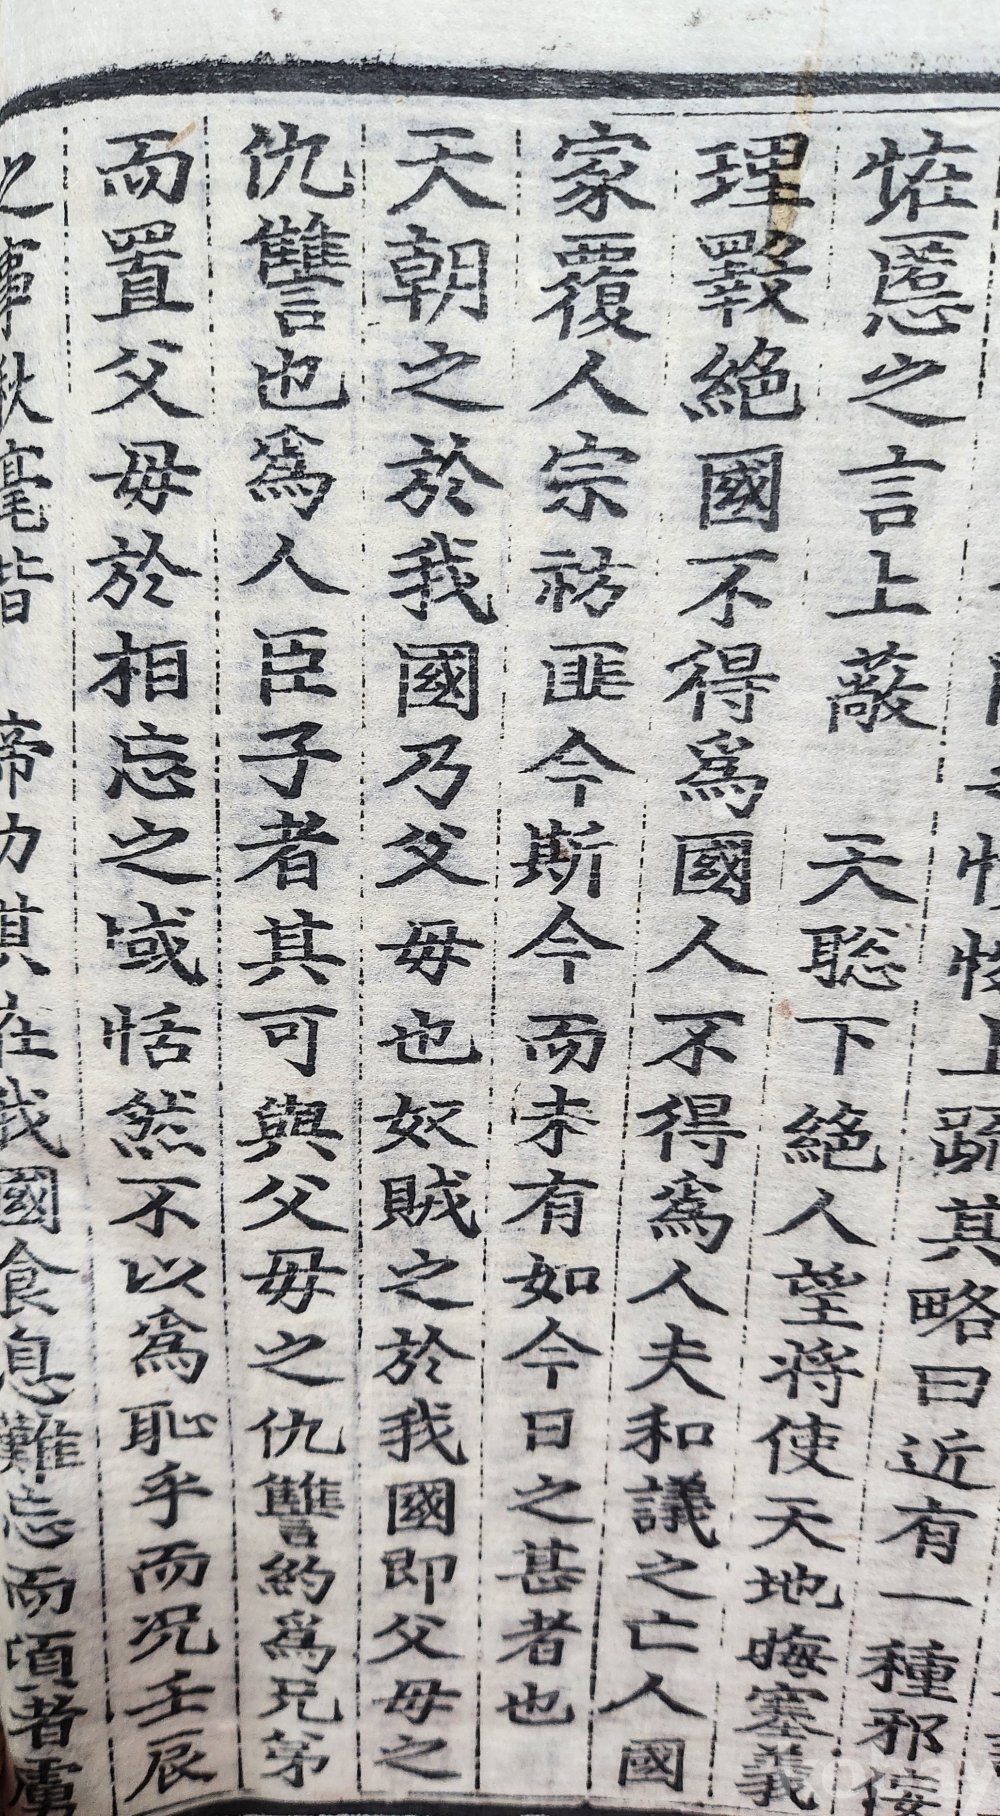 上疏其略曰近有一種邪侫
恠慝之言上蔽　天聡下絶人望将使天地晦塞義
理斁絶國不得爲國人不得爲人夫和議之亡人國
家覆人宗祊匪今斯今而未有如今日之甚者也
天朝之於我國乃父母也奴賊之於我國即父母之
仇讐也爲人臣子者其可與父母之仇讐約爲兄弟
而置父母於相忘之域恬然不以爲恥乎而况壬辰
之事秋毫皆　帝力其在我國食息難忘而頃者虜